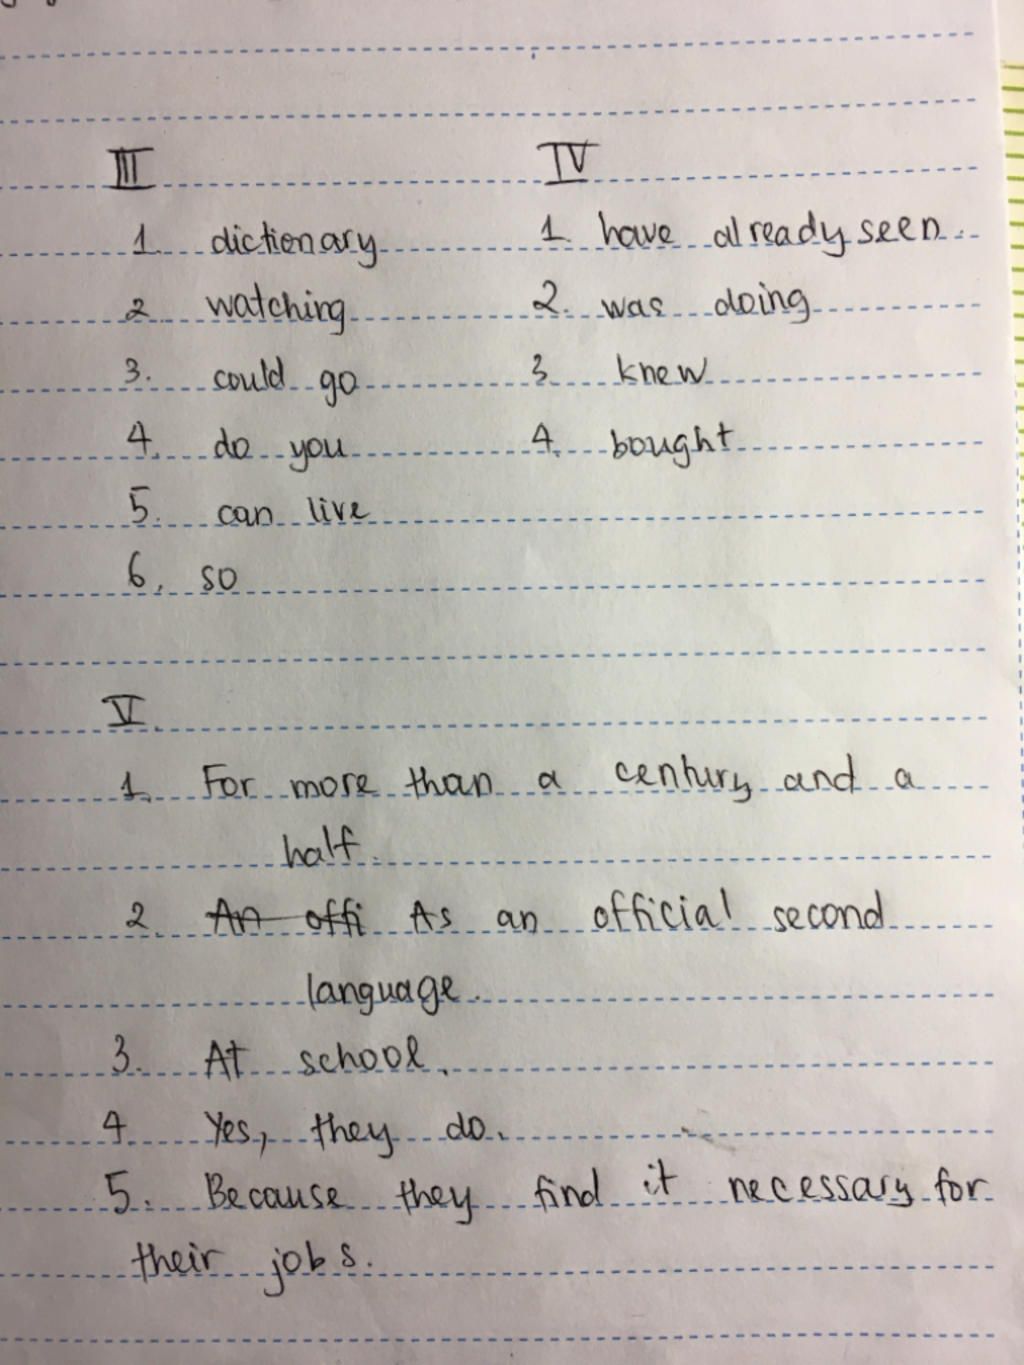 III
1. dictionary
2. watching
3. could go
4. do you
5. can live
6. so
IV
1. have already seen.
2. was doing
3. knew
4. bought
V.
1. For more than a century and a
half.
2. An offi As an official second
language.
3. At school.
4. Yes, they do.
5. Because they find it necessary for
their jobs.